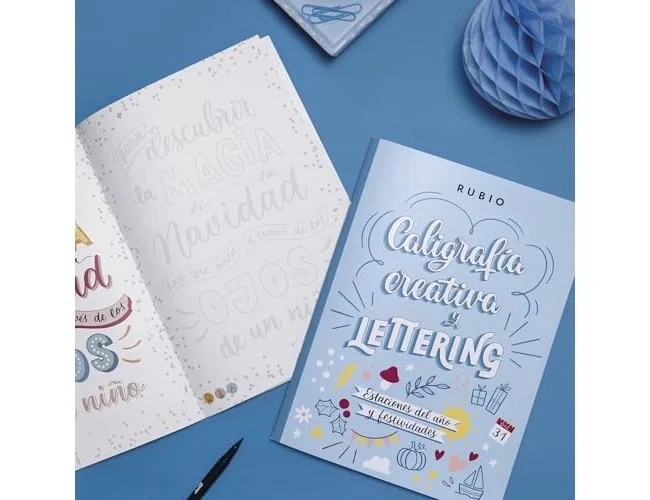 ad
vés de los
OS
niño
descubrir
la MAGIA
de la
Navidad
a través de los
OJOS
de un niñ
RUBIO
Caligrafía
creativa
y
LETTERING
Estaciones del año
y festividades
31